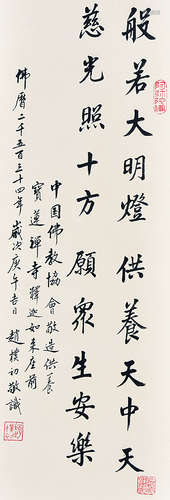 般若大明燈供養天中天
慈光照十方願眾生安樂
中国佛教協會敬造供養
寶蓮禪寺釋迦如来座前
佛曆二千五百三十四年歲次庚午吉日趙樸初敬識